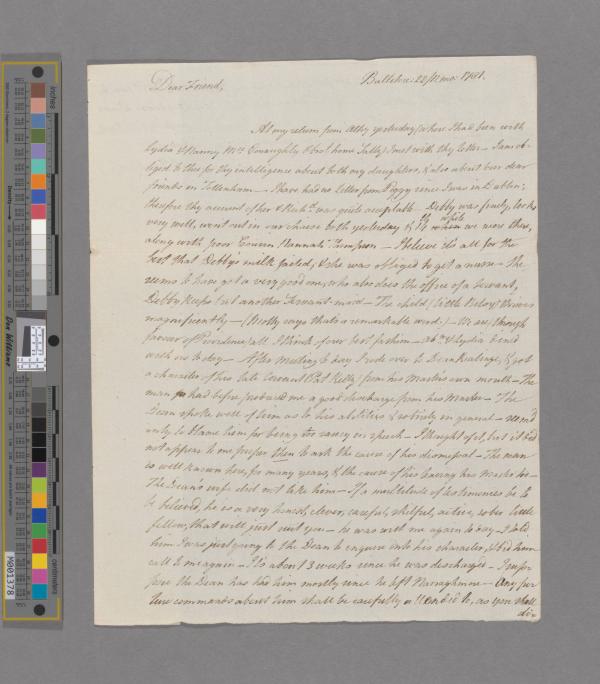 Dear Friend,
Ballitore: 22/11mo: 1781.
At my return from Athy yesterday (where I had been with
Lydia & Nanny Mrs Conaughty & brot home Sally) I met with thy letter – I am ob-
liged to thee for thy intelligence about both my daughters, & also about our dear
friends in Tottenham – I have had no letter from Peggy since I was in Dublin;
therefore thy account of her & Richd was quite acceptable – Debby was finely, looks
very well, went out in our chaise to th yesterday while we were there,
along with poor Cousin Hannah Simpson – I believe its all for the
best that Debby's milk failed, & she was obliged to get a nurse – She
seems to have got a very good one, who also does the office of a Servant,
Debby keeps but another Servant-maid – The child (little Betsy) thrives
magnificently – (Molly says that's a remarkable word:) – We are, through
favour of Providence, all I think of our best fashion – & Lydia dined
with us to day – After Meeting to day I rode over to Dean Keatinge, & got
a character of his late Servant (Pat Kelly) from his Master's own mouth – The
man had before produced me a good discharge from his Master – The
Dean spoke well of him as to his abilities & sobriety in general – seem'd
only to blame him for being too saucy in speech – I thought of it, but it did
not appear to me proper then to ask the cause of his dismission – The man
is well known here, for many years, & the cause of his leaving his Master is –
The Dean's wife did not like him – If a multitude of testimonies be to
be believed, he is a very honest, clever, careful, skilful, active, sober little
fellow, that will just suit you – he was with me again to day – I told
him I was just going to the Dean to enquire into his character, & bid him
call to me again – Its about 3 weeks since he was discharged – I sup-
pose the Dean has had him mostly since he left Narraghmore – Any fur
ther commands about him shall be carefully attended to, as you shall
di-
Inches
centimetres
Density
Don Williams
M001378